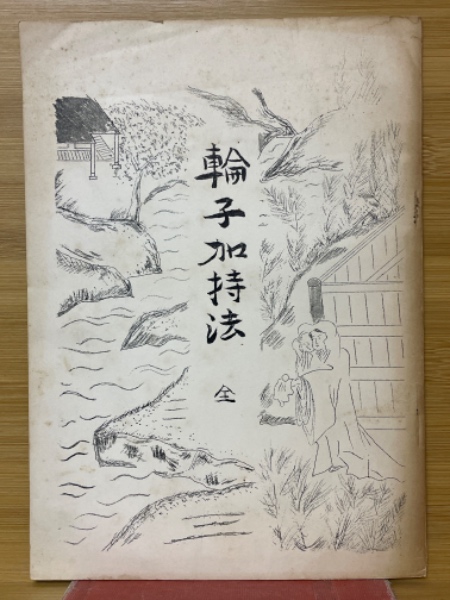 輪子加持法
全